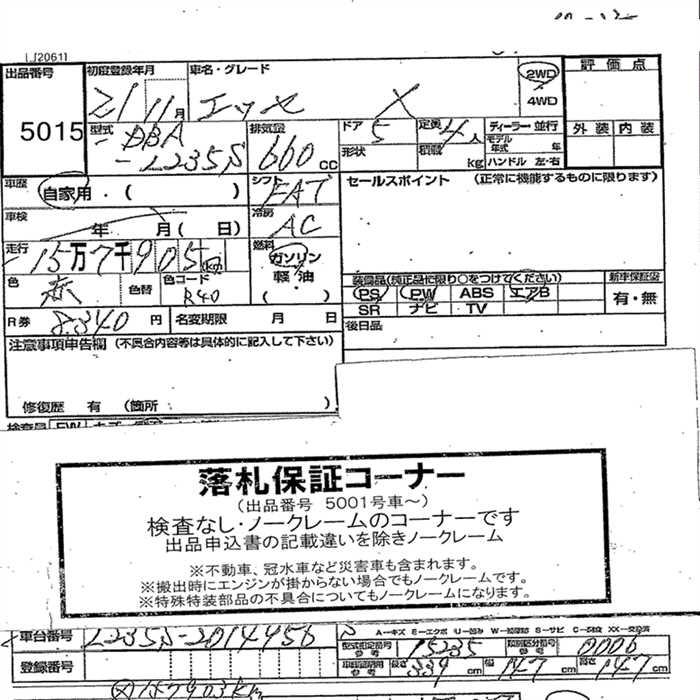 [2061]
出品番号 初度登録年月 車名・グレード 2WD 評価点
21 11月 エッセ X 4WD
5015 型式 DBA 排気量 ドア 5 定員 4人 ディーラー 並行 外装 内装
-L235S 660cc 形状 積載 kg モデル年式 年 ハンドル 左・右
車歴 自家用・( ) シフト FAT セールスポイント (正常に機能するものに限ります)
車検 年 月(日) 冷房 AC
走行 15万7千905km 燃料 ガソリン 軽油 ( )
色 赤 色替 色コード R40
装備品(純正品に限り○をつけてください) 新車保証書
PS PW ABS エアB 有・無
SR ナビ TV
R券 8,340円 名変期限 月 日 後日品
注意事項申告欄 (不具合内容等は具体的に記入して下さい)
修復歴 有 (箇所 )
検査員
落札保証コーナー
(出品番号 5001号車~)
検査なし・ノークレームのコーナーです
出品申込書の記載違いを除きノークレーム
※不動車、冠水車など災害車も含まれます。
※搬出時にエンジンが掛からない場合でもノークレームです。
※特殊特装部品の不具合についてもノークレームになります。
車台番号 L235S-2014456 A-キズ E-エクボ U-凹み W-補修跡 S-サビ C-腐食 XX-交換済
型式指定番号参考 15235 類別区分番号参考 0006
登録番号 長さ 339cm 幅 147cm 高さ 147cm
157903km